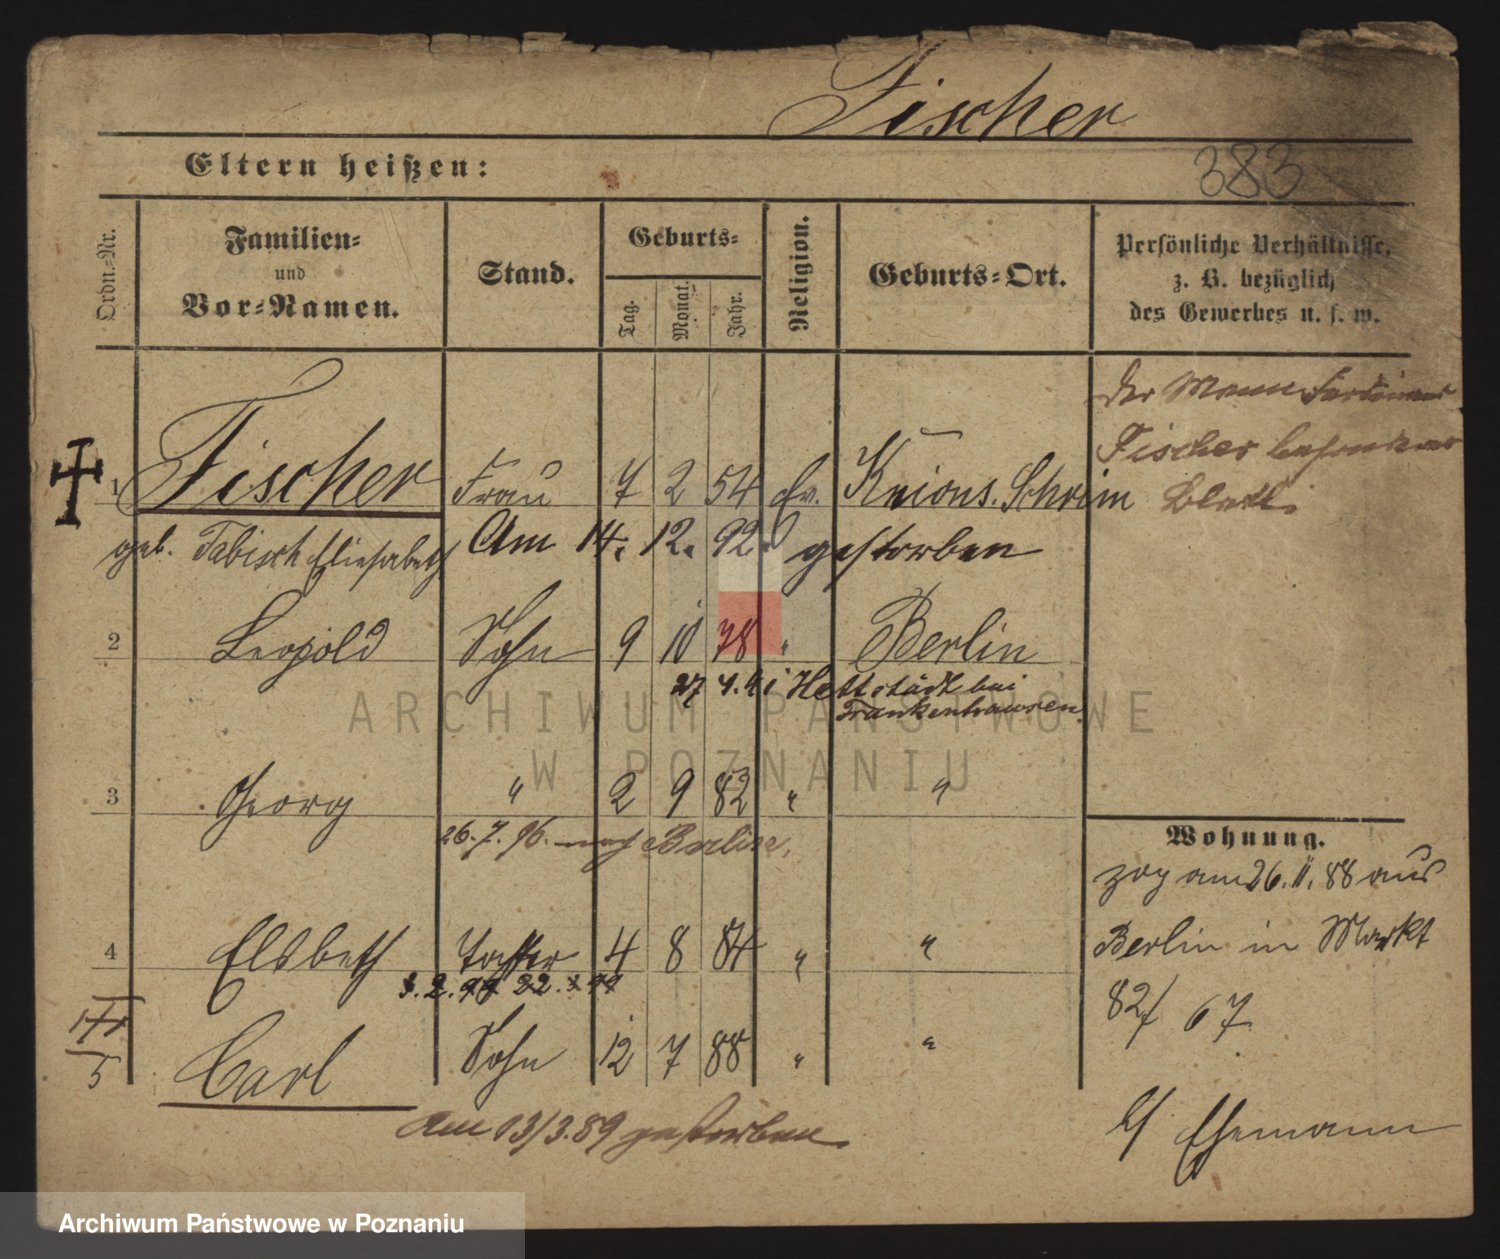 Fischer
Eltern heißen:
383
Ordn.-Nr.
Familien-
und
Vor-Namen.
Stand.
Geburts-
Tag.
Monat.
Jahr.
Religion.
Geburts-Ort.
Persönliche Verhältnisse,
z. B. bezüglich
des Gewerbes u. s. w.
Der Mann Ferdinand
Fischer besonderes
Blatt.
1 Fischer Frau 7 2 54 Ev. Schrim
geb. Eliesabeth Am 14. 12. 92. gestorben
2 Leopold Sohn 9 10 78 " Berlin
27 4. 91 Hettstädt bei
Frankenhausen.
3 Georg " 2 9 82 " "
26. 7. 96. nach Berlin.
4 Elsbeth Tochter 4 8 84 " "
5 Carl Sohn 12 7 88 " "
Am 13/3. 89 gestorben.
Wohnung.
zog am 26. 11. 88 aus
Berlin in Markt
82/ 67
Ehemann
ARCHIWUM PAŃSTWOWE
W POZNANIU
Archiwum Państwowe w Poznaniu